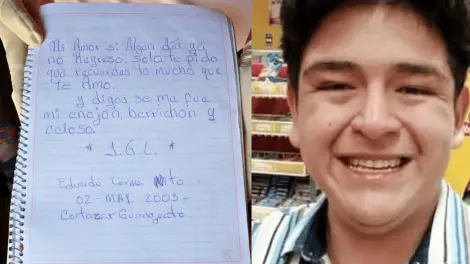 Mi Amor si Algon dia ya
no Regreso, solo te pido
que recuerdes lo mucho que
te Amo.
y digas se me fue
mi enojon, berrichon y
celoso.
* J.G.L. *
Eduardo Lerma Nito
02 - MAY. 2003 -
Cortazar Guanajuato